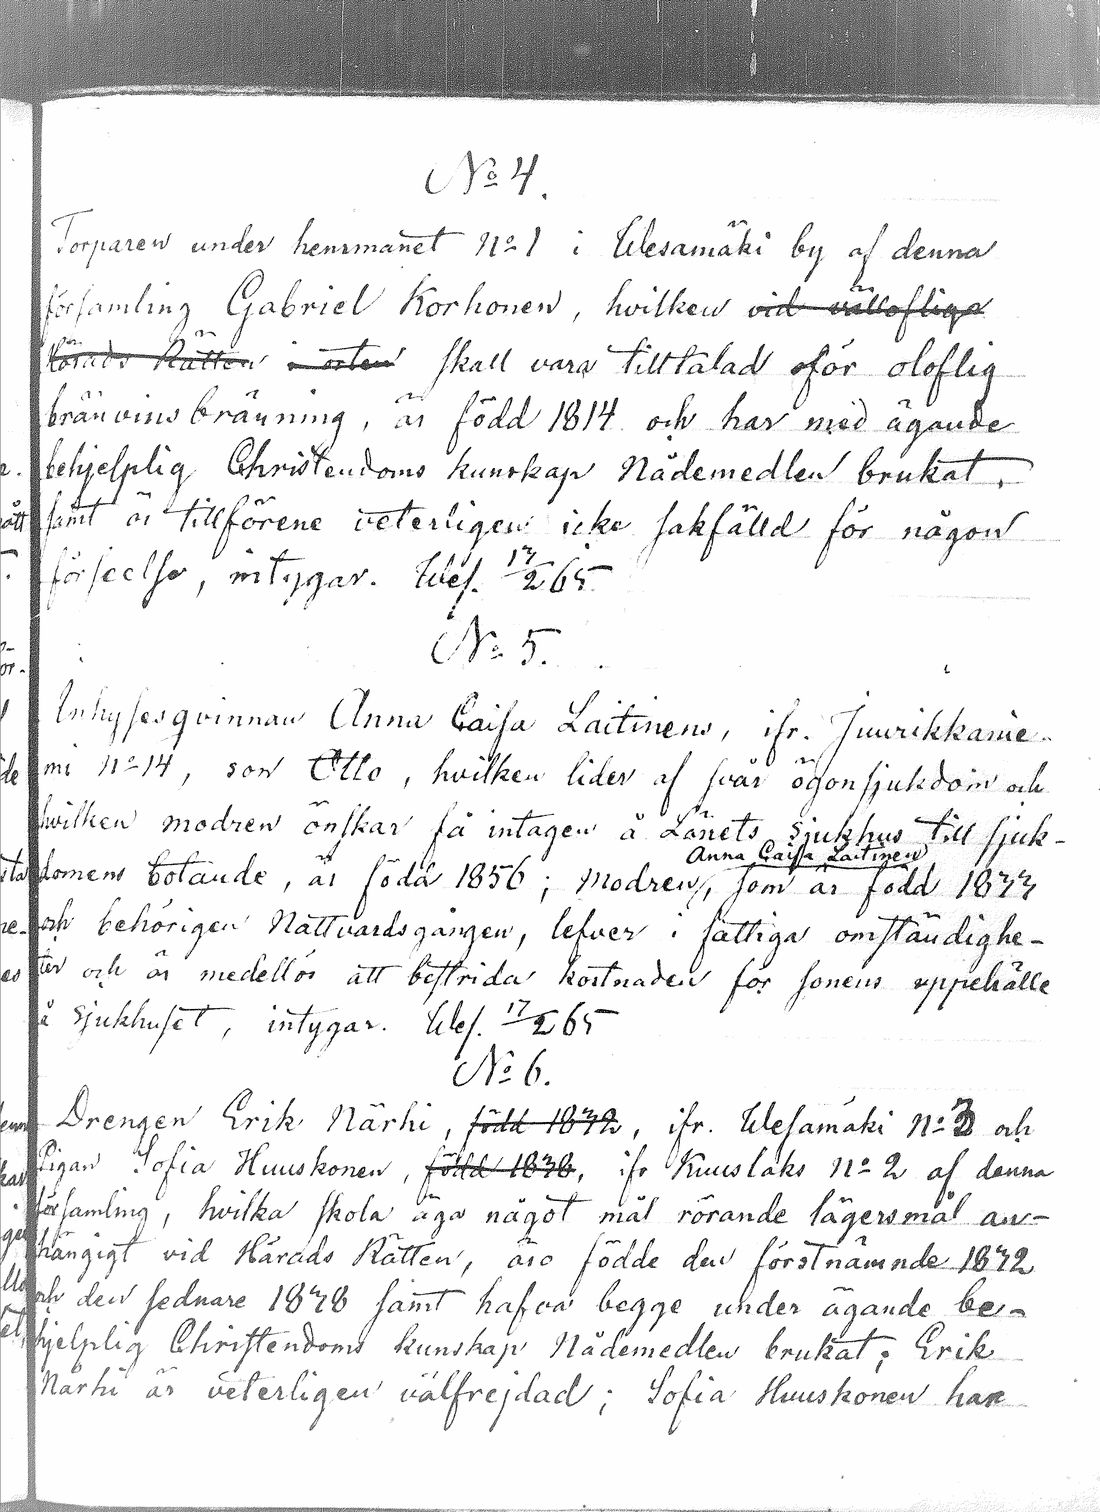 No 4.
Torparen under hemmanet No 1 i Wesamäki by af denna
församling Gabriel Korhonen, hvilken vid vällofliga
Härads Rätten i orten skall vara tilltalad för oloflig
bränvins bränning, är född 1814 och har med ägande
behjelplig Christendoms kunskap Nådemedlen brukat,
samt är tillförene veterligen icke sakfälld för någon
förseelse, intygar. Wes. 17/2 65
No 5.
Inhysesqvinnan Anna Caisa Laitinens, ifr. Juurikkanie-
mi No 14, son Otto, hvilken lider af svår ögonsjukdom och
hvilken modren önskar få intagen å Länets sjukhus till sjuk-
domens botande, är född 1856; Modren, Anna Caisa Laitinen som är född 1833
och behörigen Nattvardsgången, lefver i fattiga omständighe-
ter och är medellös att bestrida kostnaden för sonens uppehälle
å sjukhuset, intygar. Wes. 17/2 65
No 6.
Drengen Erik Närhi, född 1842, ifr. Wesamäki No 3 och
Pigan Sofia Huuskonen, född 1838, ifr Kuuslaks No 2 af denna
församling, hvilka skola äga något mål rörande lägersmål an-
hängigt vid Härads Rätten, äro födde den förstnämnde 1842
och den sednare 1838 samt hafva begge under ägande be-
hjelplig Christendoms kunskap Nådemedlen brukat; Erik
Närhi är veterligen välfrejdad; Sofia Huuskonen har